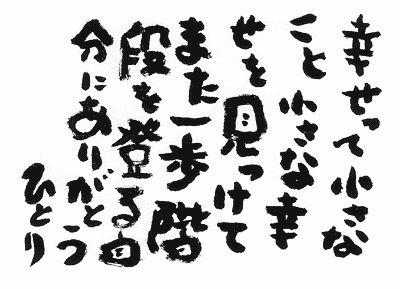 幸せって小さな
こと小さな幸
せを見つけて
また一歩階
段を登る自
分にありがとう
ひとり